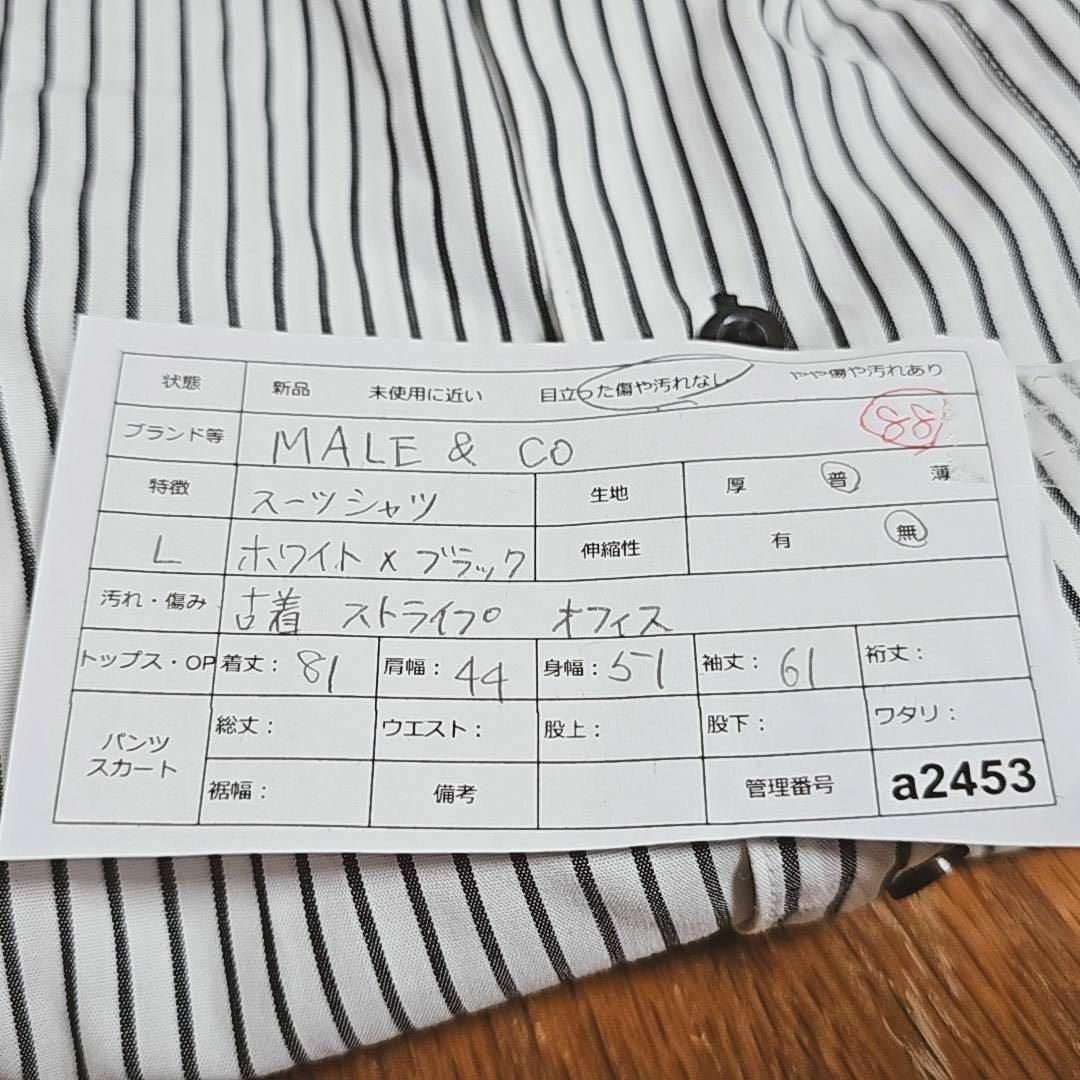 状態 新品 未使用に近い 目立った傷や汚れなし やや傷や汚れあり
ブランド等 MALE & CO 88
特徴 スーツシャツ 生地 厚 普 薄
L ホワイト×ブラック 伸縮性 有 無
汚れ・傷み 古着 ストライプ オフィス
トップス・OP 着丈: 81 肩幅: 44 身幅: 57 袖丈: 61 裄丈:
パンツ スカート 総丈: ウエスト: 股上: 股下: ワタリ:
裾幅: 備考 管理番号 a2453